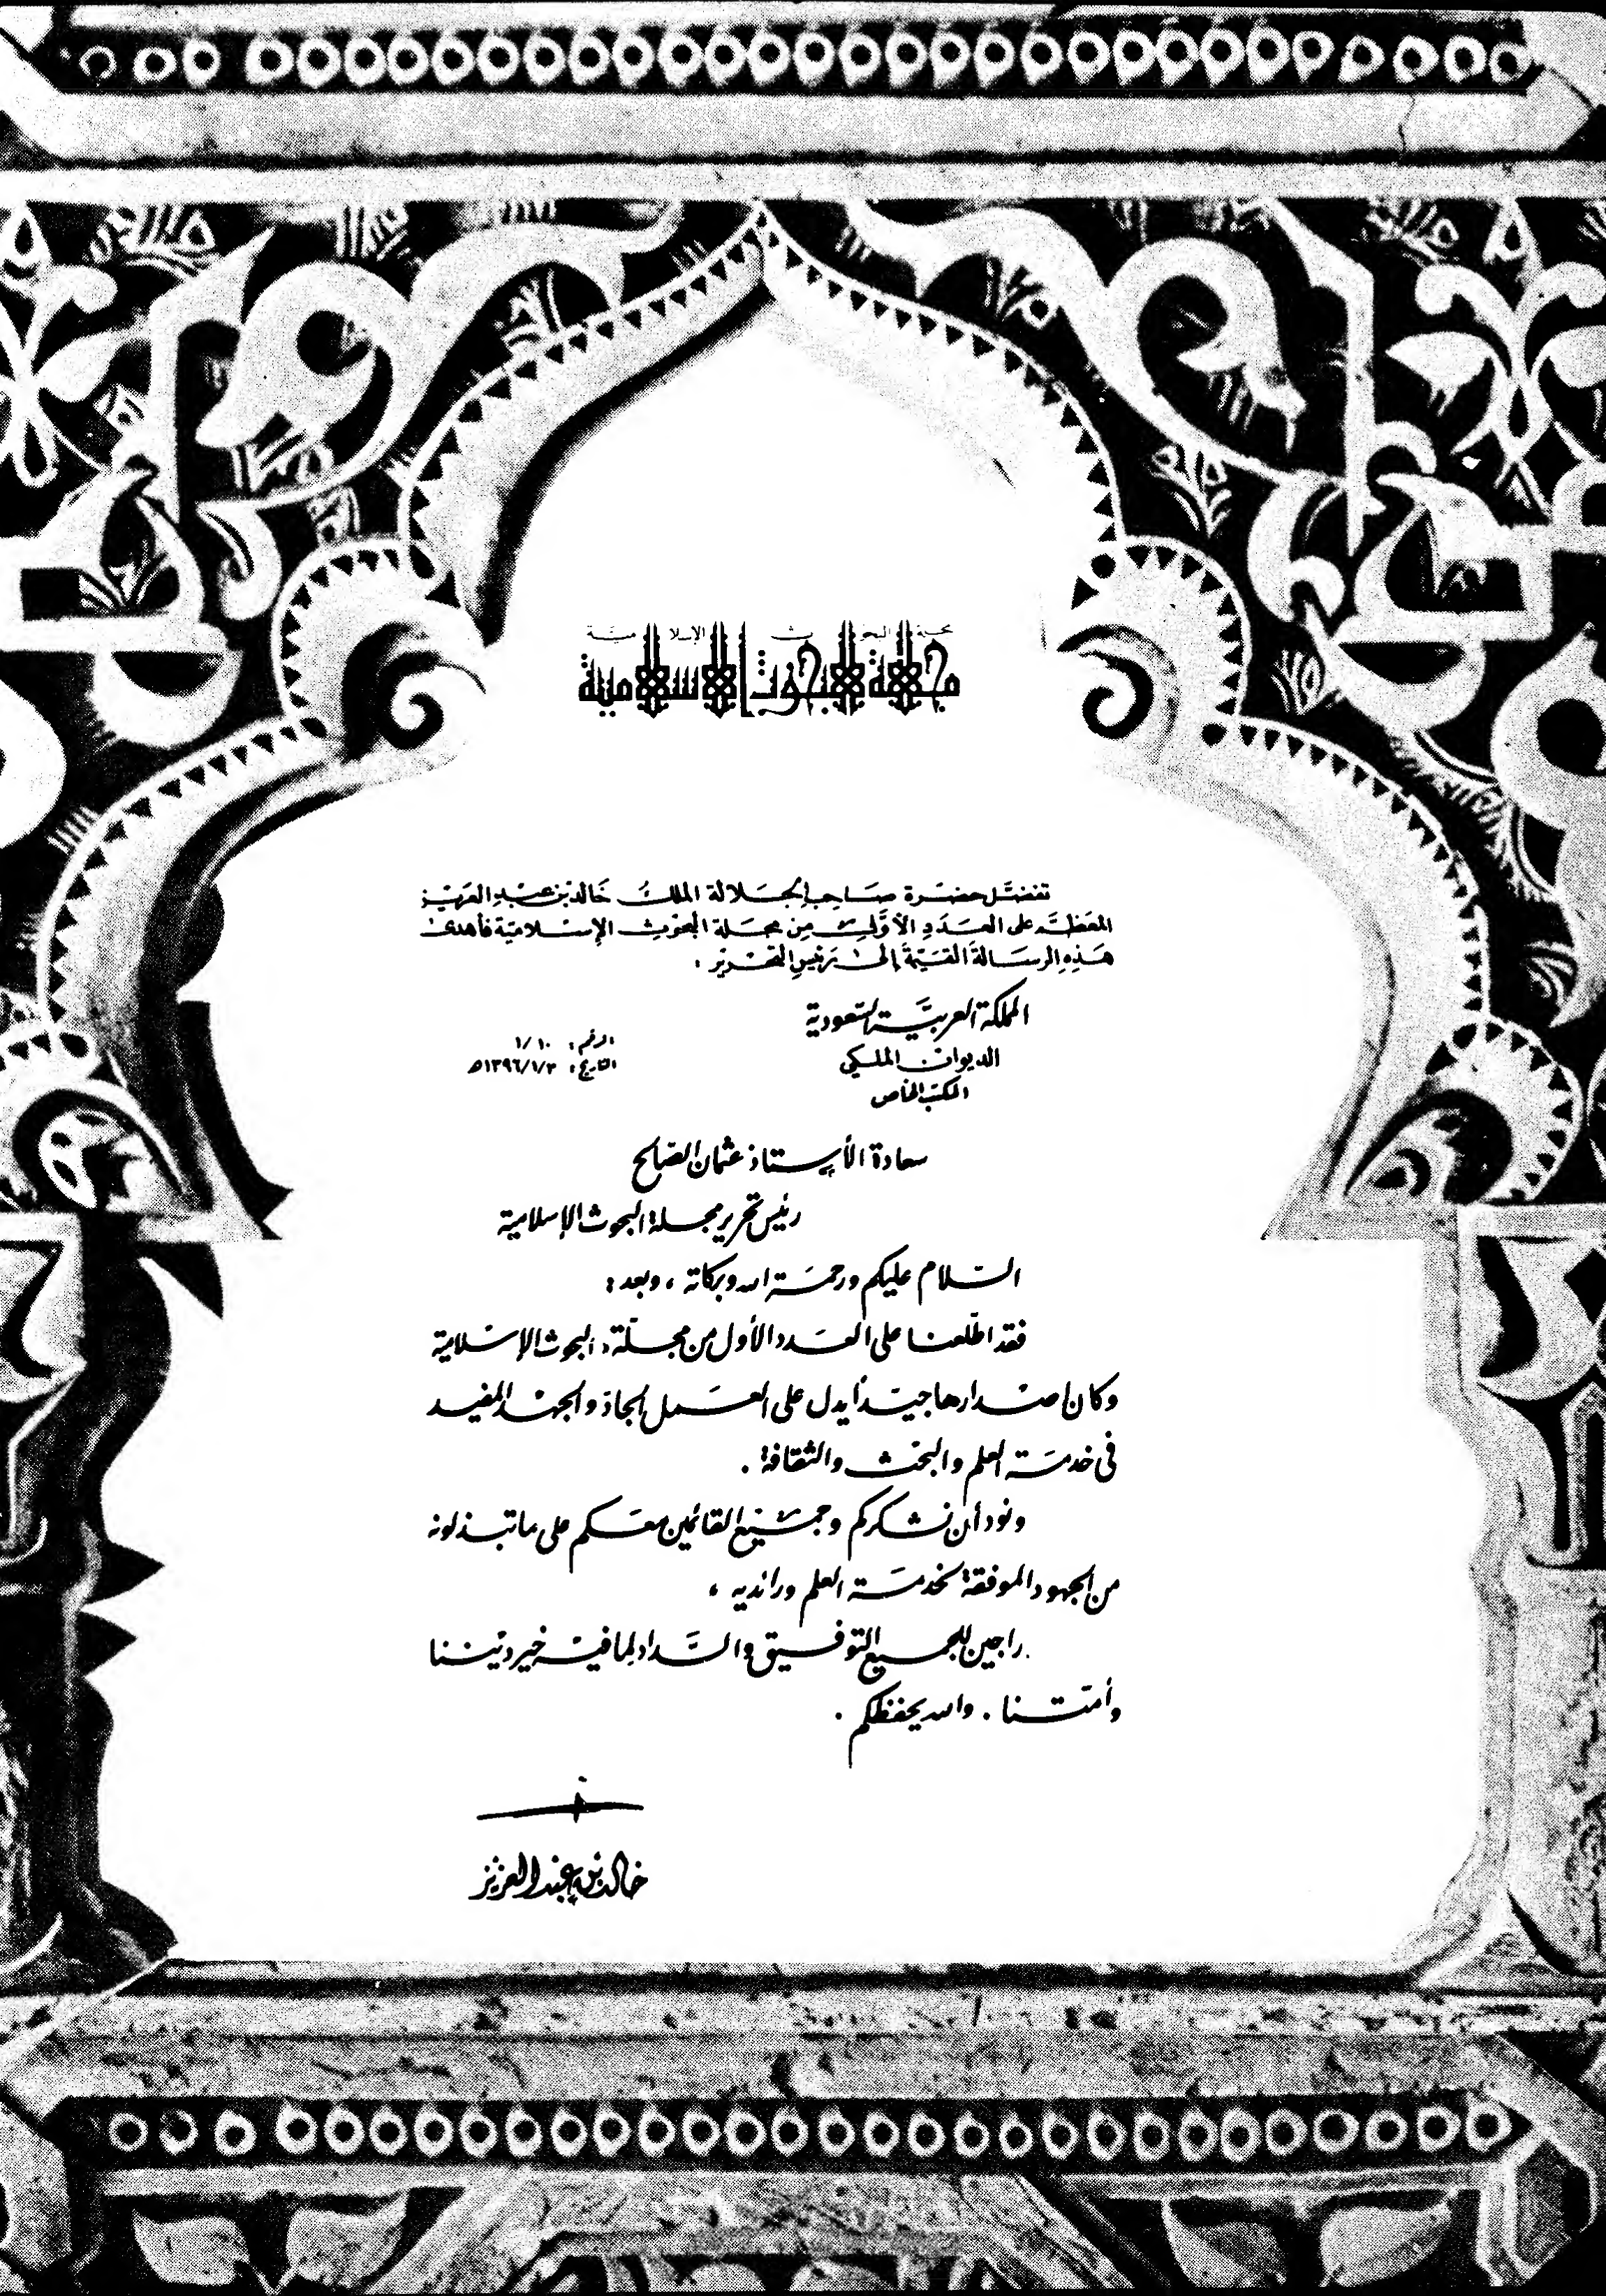 مجلة البحوث الإسلامية
مجلة البحوث الإسلامية
تفضل حضرة صاحب الجلالة الملك خالد بن عبد العزيز
المعظم على العدد الأول من مجلة البحوث الإسلامية فأهدى
هذه الرسالة القيمة إلى رئيس التحرير :
المملكة العربية السعودية
الديوان الملكي
المكتب الخاص
الرقم : ١/١٠
التاريخ : ١٣٩٦/١/٣هـ
سعادة الأستاذ عثمان الصالح
رئيس تحرير مجلة البحوث الإسلامية
السلام عليكم ورحمة الله وبركاته ، وبعد :
فقد اطلعنا على العدد الأول من مجلة البحوث الإسلامية
وكان إصدارها جيداً يدل على العمل الجاد والجهد المفيد
في خدمة العلم والبحث والثقافة .
ونود أن نشكركم وجميع القائمين معكم على ما تبذلونه
من الجهود الموفقة لخدمة العلم ورائديه ،
راجين للجميع التوفيق والسداد لما فيه خير ديننا
وأمتنا . والله يحفظكم .
خالد بن عبد العزيز